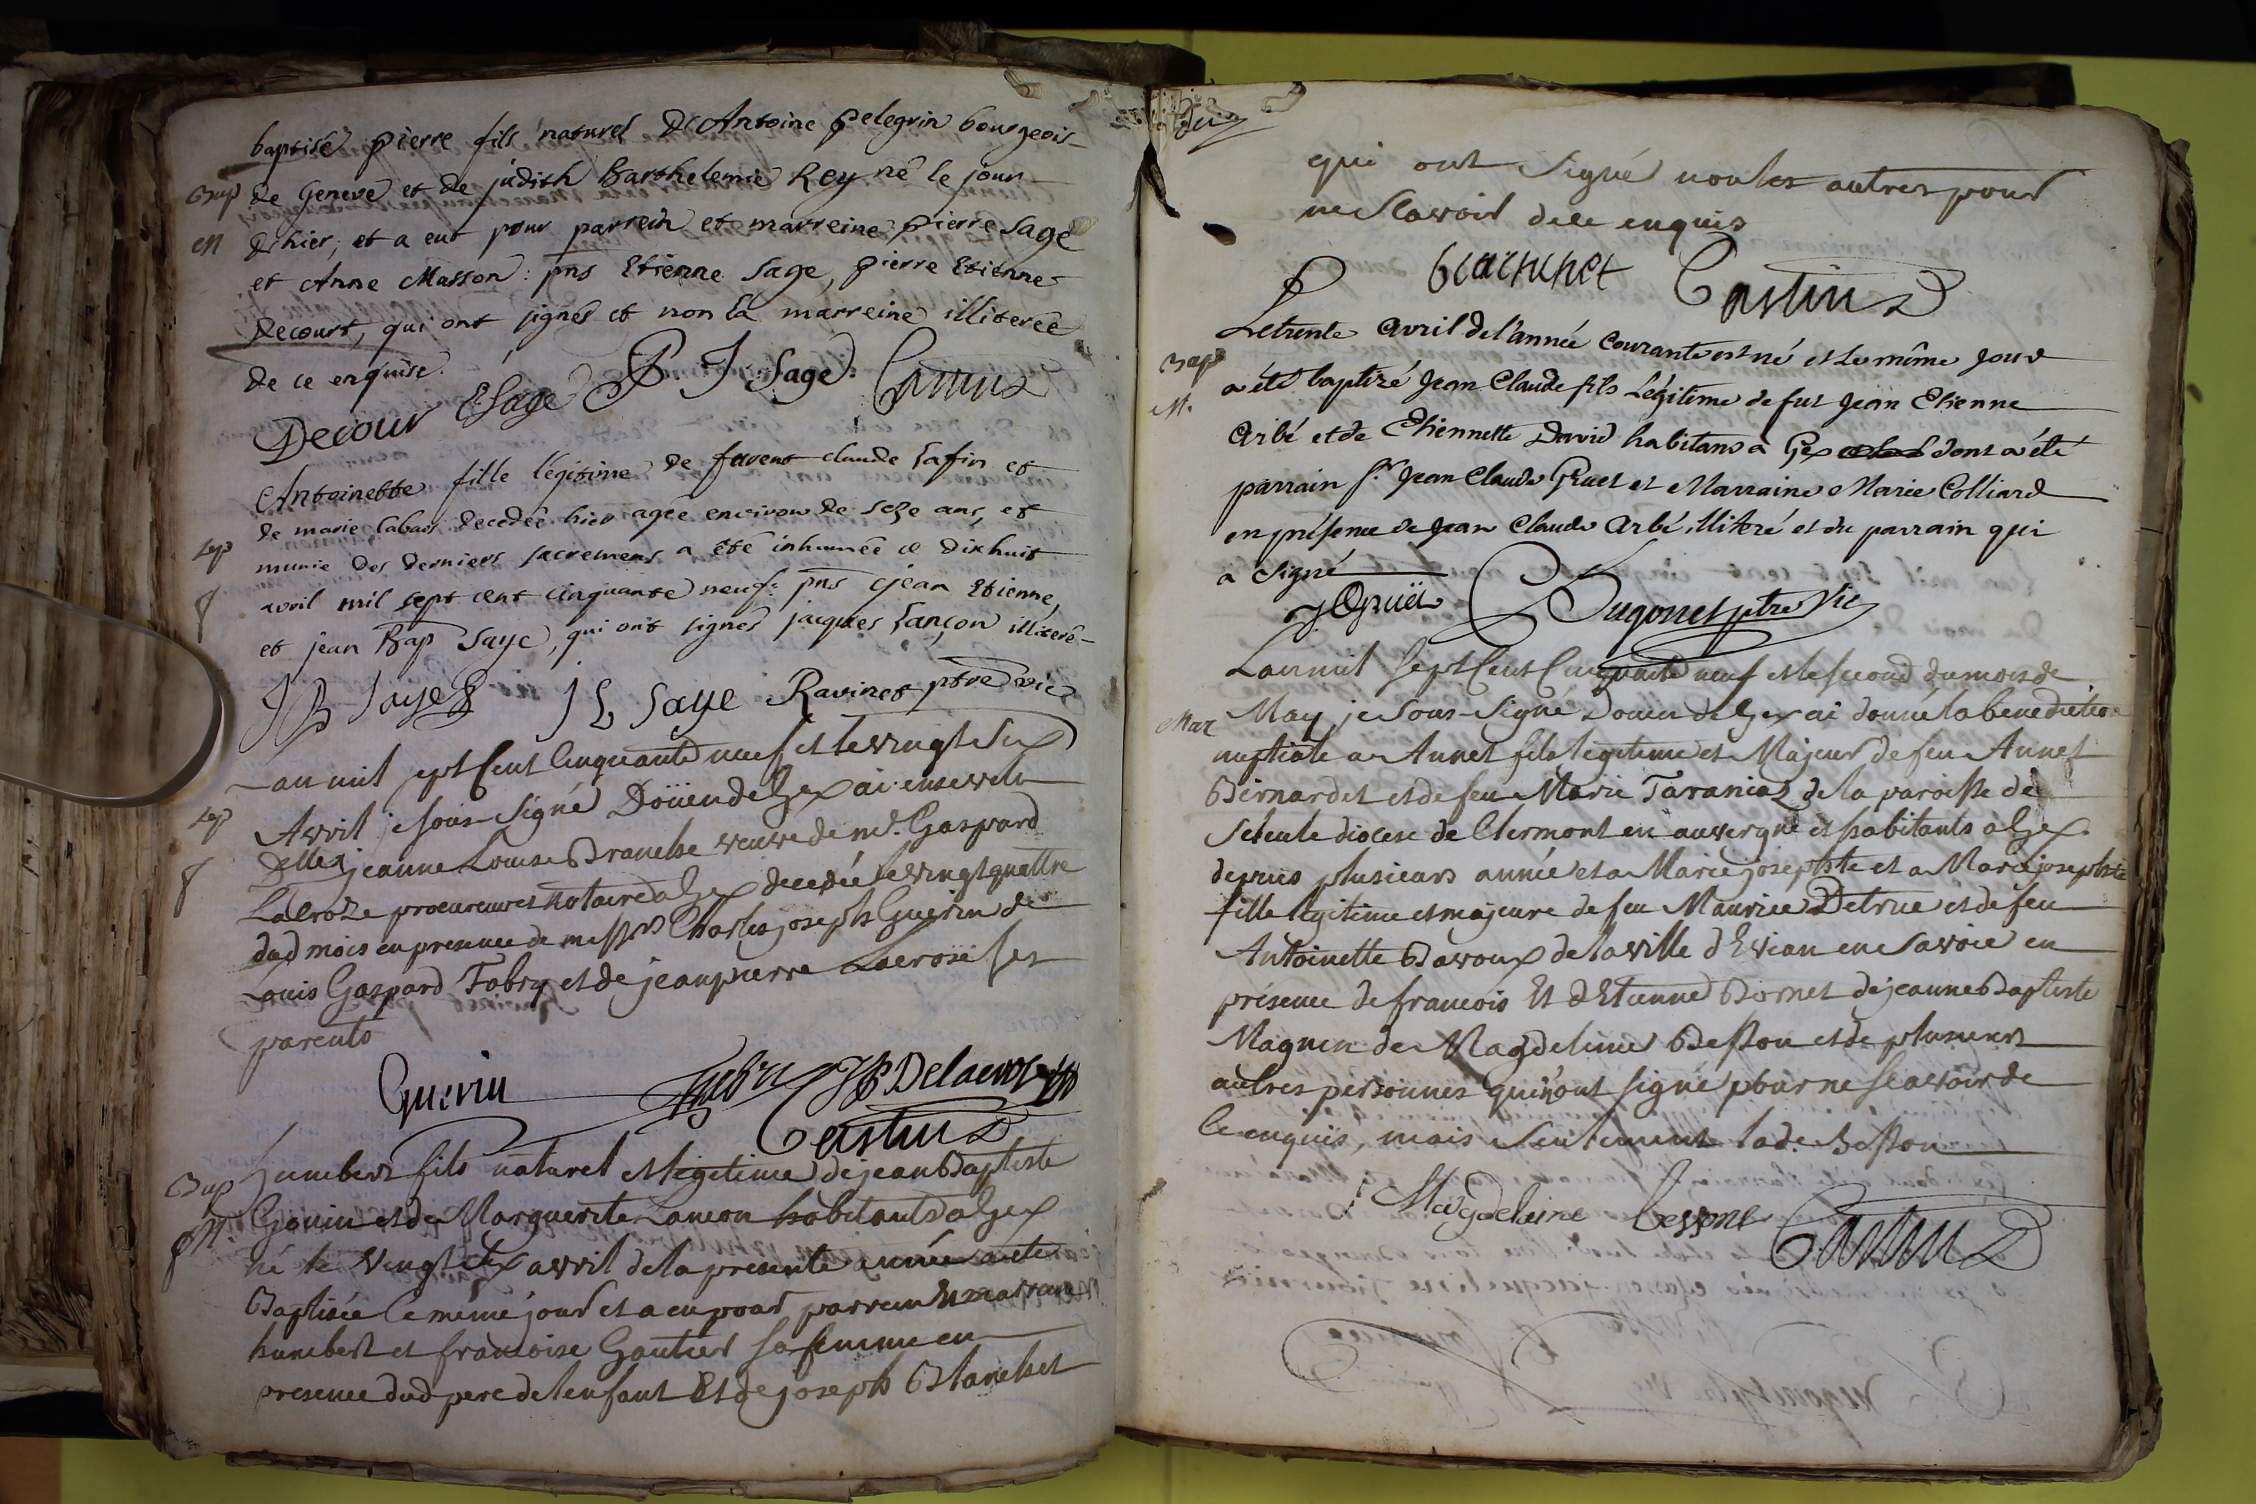 baptisé pierre fils naturel D'Antoine pelegrin bourgeois
Bap de Geneve et de judith Barthelemie Rey né le jour
M d'hier; et a eut pour parrein et marreine pierre Sage
et Anne Masson: pns Etienne Sage, pierre Etienne
Decourt, qui ont signés et non la marreine illiterée
de ce enquise.
Decour ESage P. J. Sage. Castin D
Antoinette fille légitime de furent claude Lafin et
de marie Cabaos decedée hier agée environ de seze ans, et
Sep munie des derniers sacremens a été inhumée ce dixhuit
f avril mil sept cent cinquante neuf: pns jean Etienne,
et jean Bap Saye, qui ont signés jacques Lançon illiteré
JB Saye J E Saye Ravinet ptre vic
Lan mil sept Cent Cinquante neuf et le vingt six
Sep Avril je sous signé Doüen de Gex ai enseveli
Delle jeanne Louise Branche veuve de md. Gaspard
f LaCroze procureur et Notaire a Gex decedée le vingt quattre
dud mois en presence de messrs Charles joseph Guerin de
Louis Gaspard Fabry et de jean pierre Lacrose ses
parents
Guerin Fabri JP Delacroze
Castin D
Bap humbert fils naturel et legitime de jean Baptiste
M. Gonin et de Marguerite Lancon habitants a Gex
né le vingt six avril de la presente année a eté
Baptisée le meme jour et a eu pour parrein Et marraine
humbert et francoise Gautier sa femme en
presence dud pere de lenfant Et de joseph Blanchet
qui ont signé non les autres pour
ne Scavoir de ce enquis
blanchet Castin D
Le trente avril de l'année courante est né et le même jour
Bap a été baptizé Jean Claude fils Légitime de fut Jean Etienne
M. Arbé et de Etiennette David habitans a Gex dont a été
parrain sr. Jean Claude Gruet et Marraine Marie Colliard
en présence de Jean Claude Arbé illiteré et du parrain qui
a signé
J Gruët Dugonet ptre Vic
Lan mil sept Cent Cinquante neuf et le second du mois de
Mar May je Sous-Signé Doüen de Gex ai donné la benediction
nuptiale a Annet fils legitime et Majeur de feu Annet
Bernardet et de feu Marie Taraniaz de la paroisse de
diocese de Clermont en auvergne et habitants a Gex
depuis plusieurs année et a Marie josephte et a Marie josephte
fille legitime et majeure de feu Maurice Detrue et de feu
Antoinette Bavoux de la ville d'Evian en Savoie en
présence de francois Et d'Etienne Bornet de jeanne Baptiste
Magnin de Magdeleine Besson et de plusieurs
autres personnes qui n'ont signé pour ne scavoir de
ce enquis, mais seulement lade. Besson
Magdeleine besson Castin D